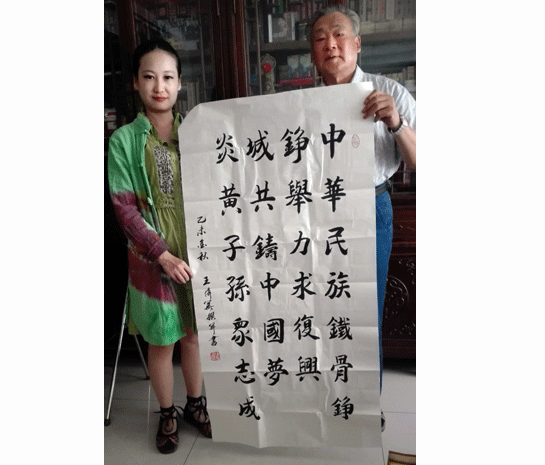 中華民族鐵骨錚
錚舉力求復興
炎黃子孫眾志成
城共鑄中國夢
乙未秋
王書